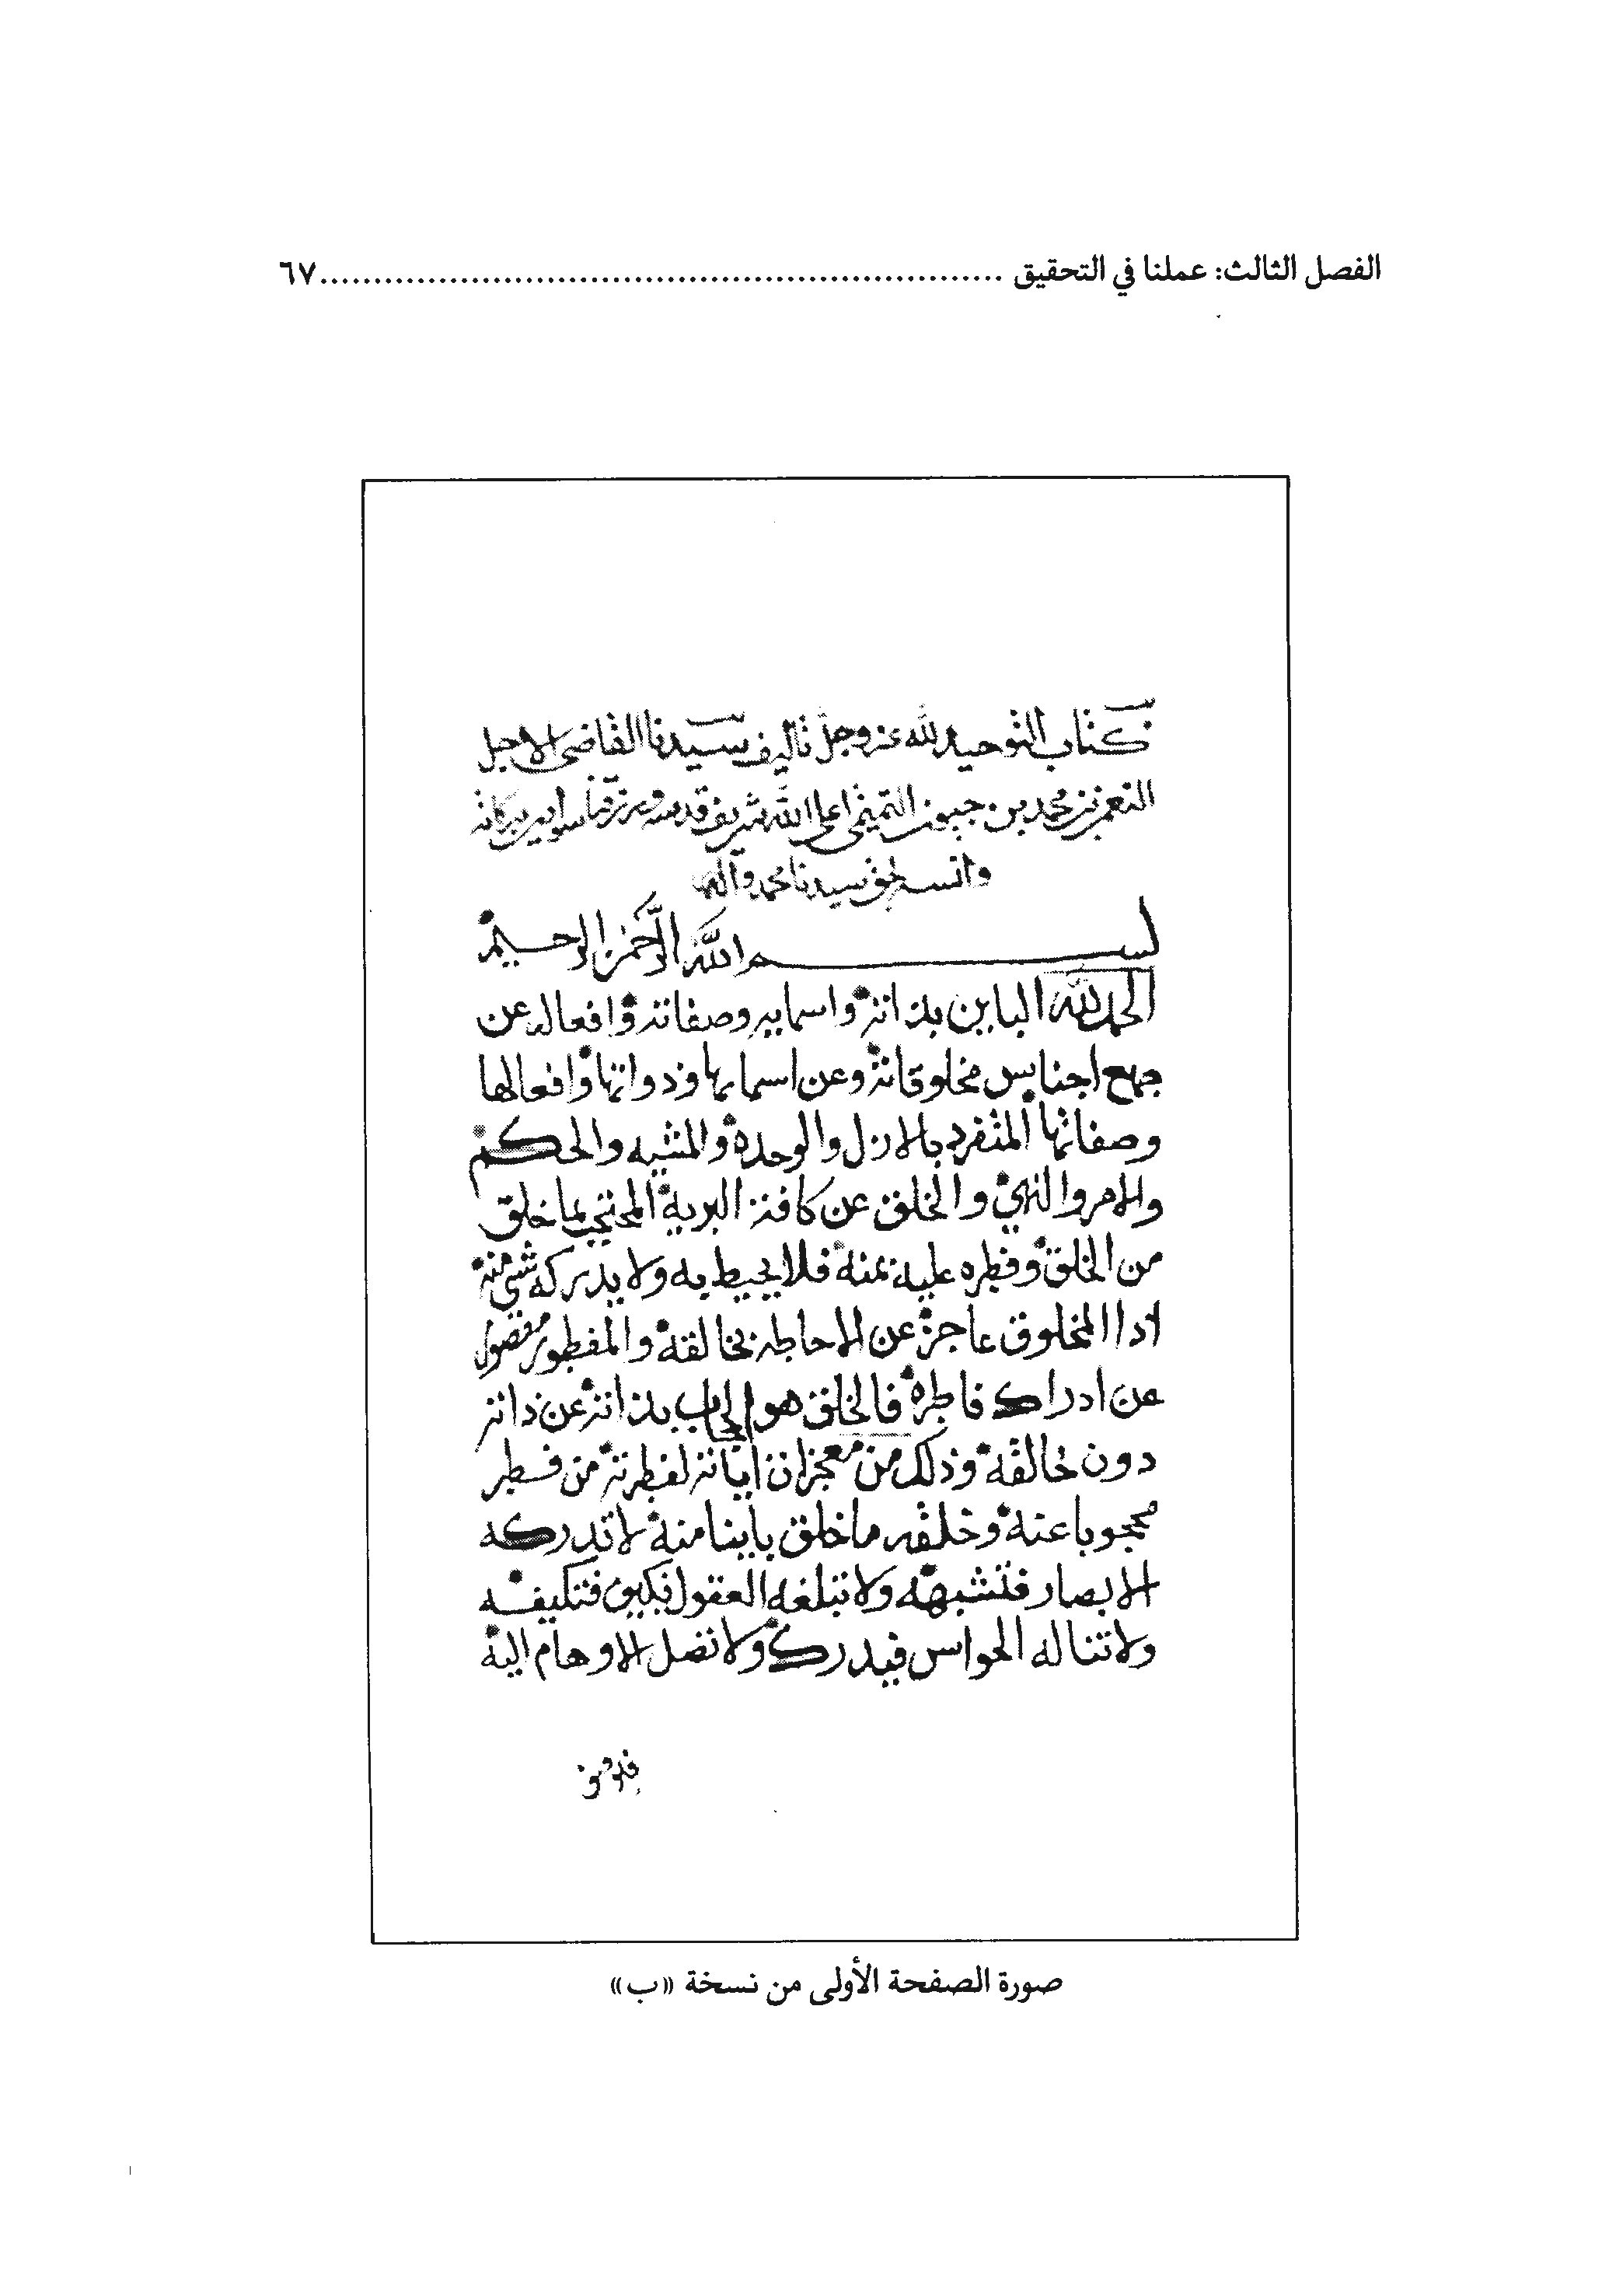 الفصل الثالث: عملنا في التحقيق ................................................................ ٦٧
كتاب التوحيد لله عز وجل تاليف سيدنا القاضي الاجل
النعمن بن محمد بن حيون التميمي اعلى الله شريف قدسه ورزقنا بركاته
وانسه بحق سيدنا محمد واله
بسم الله الرحمن الرحيم
الحمد لله الباين بذاته واسمايه وصفاته وافعاله عن
جميع اجناس مخلوقاته وعن اسمايها وذواتها وافعالها
وصفاتها المتفرد بالازل والوحدة والمشيه والحكم
والامر والنهي والخلق عن كافة البرية المحتجب بما خلق
من الخلق وفطره عليه بمنه فلا يحيط به ولا يدركه شي منه
اذا المخلوق عاجز عن الاحاطة بخالقه والمفطور مقصور
عن ادراك فاطره فالخلق هو الحجاب بذاته عن ذاته
دون خالقه وذلك من معجزات اياته لفطرته من فطر
محجوبا عنه وخلقه ما خلق باينا منه لا تدركه
الابصار فتشبهه ولا تبلغه العقول فتكيفه
ولا تناله الحواس فيدرك ولا تصل الاوهام اليه
صورة الصفحة الأولى من نسخة «ب»